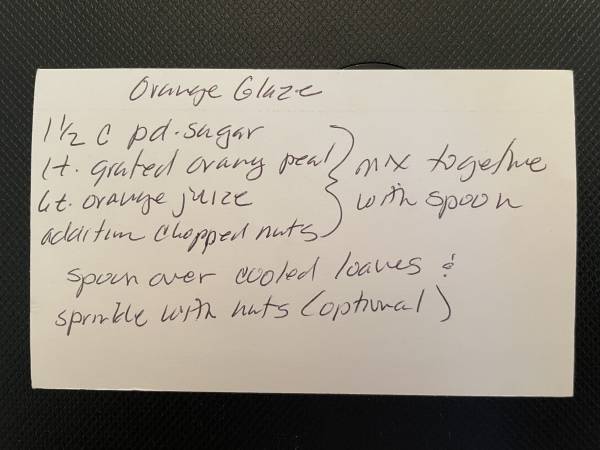 Orange Glaze
1 1/2 c pd. sugar
1 t. grated orang peal
6 t. orange juice
addition chopped nuts
mix together
with spoon
spoon over cooled loaves &
sprinkle with nuts (optional)